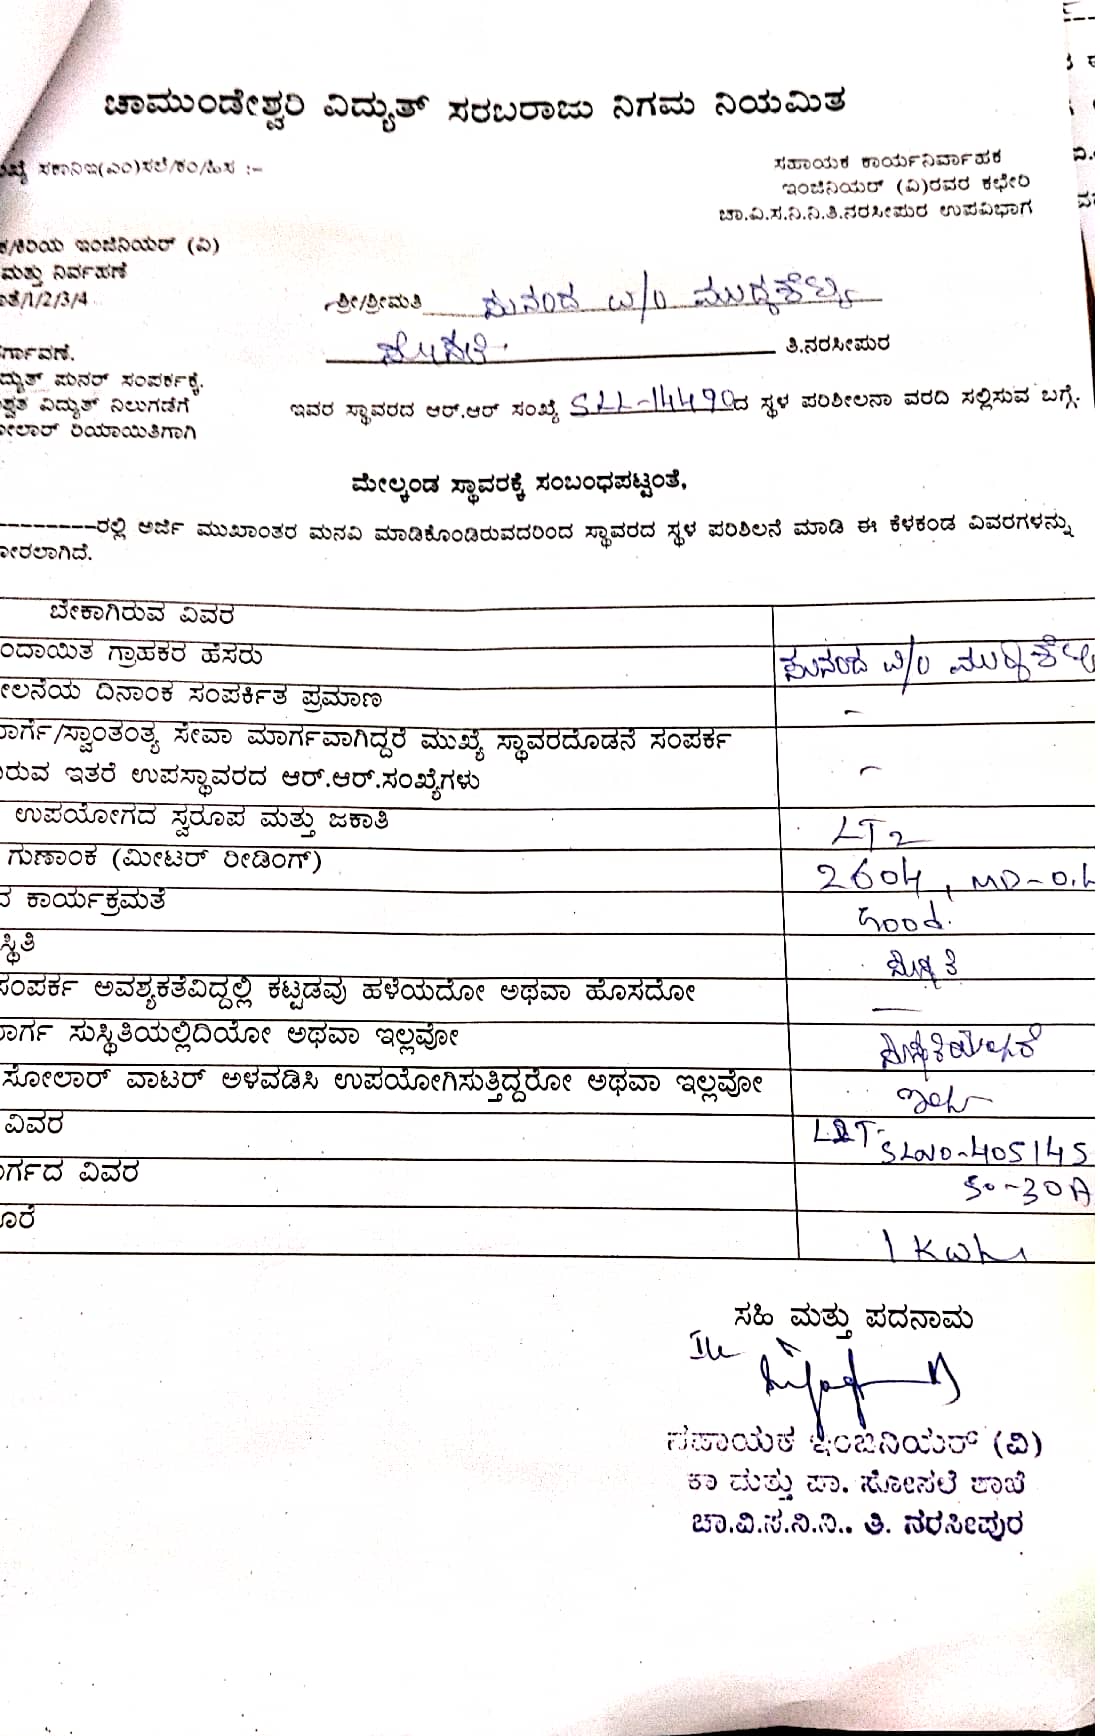 ಚಾಮುಂಡೇಶ್ವರಿ ವಿದ್ಯುತ್ ಸರಬರಾಜು ನಿಗಮ ನಿಯಮಿತ
ಸಹಾಯಕ ಕಾರ್ಯನಿರ್ವಾಹಕ
ಇಂಜಿನಿಯರ್ (ವಿ)ರವರ ಕಛೇರಿ
ಚಾ.ವಿ.ಸ.ನಿ.ನಿ.ತಿ.ನರಸೀಪುರ ಉಪವಿಭಾಗ
ಕಿರಿಯ ಇಂಜಿನಿಯರ್ (ವಿ)
ಮತ್ತು ನಿರ್ವಹಣೆ
/1/2/3/4
ಶ್ರೀ/ಶ್ರೀಮತಿ ಸುನಂದ W/O
ತಿ.ನರಸೀಪುರ
ರ್ಗಾವಣೆ.
ದ್ಯುತ್ ಪುನರ್ ಸಂಪರ್ಕಕ್ಕೆ.
ವಿದ್ಯುತ್ ನಿಲುಗಡೆಗೆ
ೋಲಾರ್ ರಿಯಾಯಿತಿಗಾಗಿ
ಇವರ ಸ್ಥಾವರದ ಆರ್.ಆರ್ ಸಂಖ್ಯೆ SLL-14490ದ ಸ್ಥಳ ಪರಿಶೀಲನಾ ವರದಿ ಸಲ್ಲಿಸುವ ಬಗ್ಗೆ.
ಮೇಲ್ಕಂಡ ಸ್ಥಾವರಕ್ಕೆ ಸಂಬಂಧಪಟ್ಟಂತೆ,
--------ರಲ್ಲಿ ಅರ್ಜಿ ಮುಖಾಂತರ ಮನವಿ ಮಾಡಿಕೊಂಡಿರುವದರಿಂದ ಸ್ಥಾವರದ ಸ್ಥಳ ಪರಿಶಿಲನೆ ಮಾಡಿ ಈ ಕೆಳಕಂಡ ವಿವರಗಳನ್ನು
ೋರಲಾಗಿದೆ.
ಬೇಕಾಗಿರುವ ವಿವರ
ಂದಾಯಿತ ಗ್ರಾಹಕರ ಹೆಸರು ಸುನಂದ W/O
ೀಲನೆಯ ದಿನಾಂಕ ಸಂಪರ್ಕಿತ ಪ್ರಮಾಣ -
ಾರ್ಗ/ಸ್ವಾಂತಂತ್ಯ ಸೇವಾ ಮಾರ್ಗವಾಗಿದ್ದರೆ ಮುಖ್ಯೆ ಸ್ಥಾವರದೊಡನೆ ಸಂಪರ್ಕ
ಿರುವ ಇತರೆ ಉಪಸ್ಥಾವರದ ಆರ್.ಆರ್.ಸಂಖ್ಯೆಗಳು -
ಉಪಯೋಗದ ಸ್ವರೂಪ ಮತ್ತು ಜಕಾತಿ LT2
ಗುಣಾಂಕ (ಮೀಟರ್ ರೀಡಿಂಗ್) 2604, MD-0.
ದ ಕಾರ್ಯಕ್ರಮತೆ Good.
ಸ್ಥಿತಿ
ಸಂಪರ್ಕ ಅವಶ್ಯಕತೆವಿದ್ದಲ್ಲಿ ಕಟ್ಟಡವು ಹಳೆಯದೋ ಅಥವಾ ಹೊಸದೋ —
ಾರ್ಗ ಸುಸ್ಥಿತಿಯಲ್ಲಿದಿಯೋ ಅಥವಾ ಇಲ್ಲವೋ
ಸೋಲಾರ್ ವಾಟರ್ ಅಳವಡಿಸಿ ಉಪಯೋಗಿಸುತ್ತಿದ್ದರೋ ಅಥವಾ ಇಲ್ಲವೋ ಇಲ್ಲ
ವಿವರ L&T- SLNO-405145
ರ್ಗದ ವಿವರ 50-30A
ೂರೆ 1 KWh
ಸಹಿ ಮತ್ತು ಪದನಾಮ
ಸಹಾಯಕ ಇಂಜಿನಿಯರ್ (ವಿ)
ಕಾ ಮತ್ತು ಪಾ. ಸೋಸಲೆ ಶಾಖೆ
ಚಾ.ವಿ.ಸ.ನಿ.ನಿ.. ತಿ. ನರಸೀಪುರ